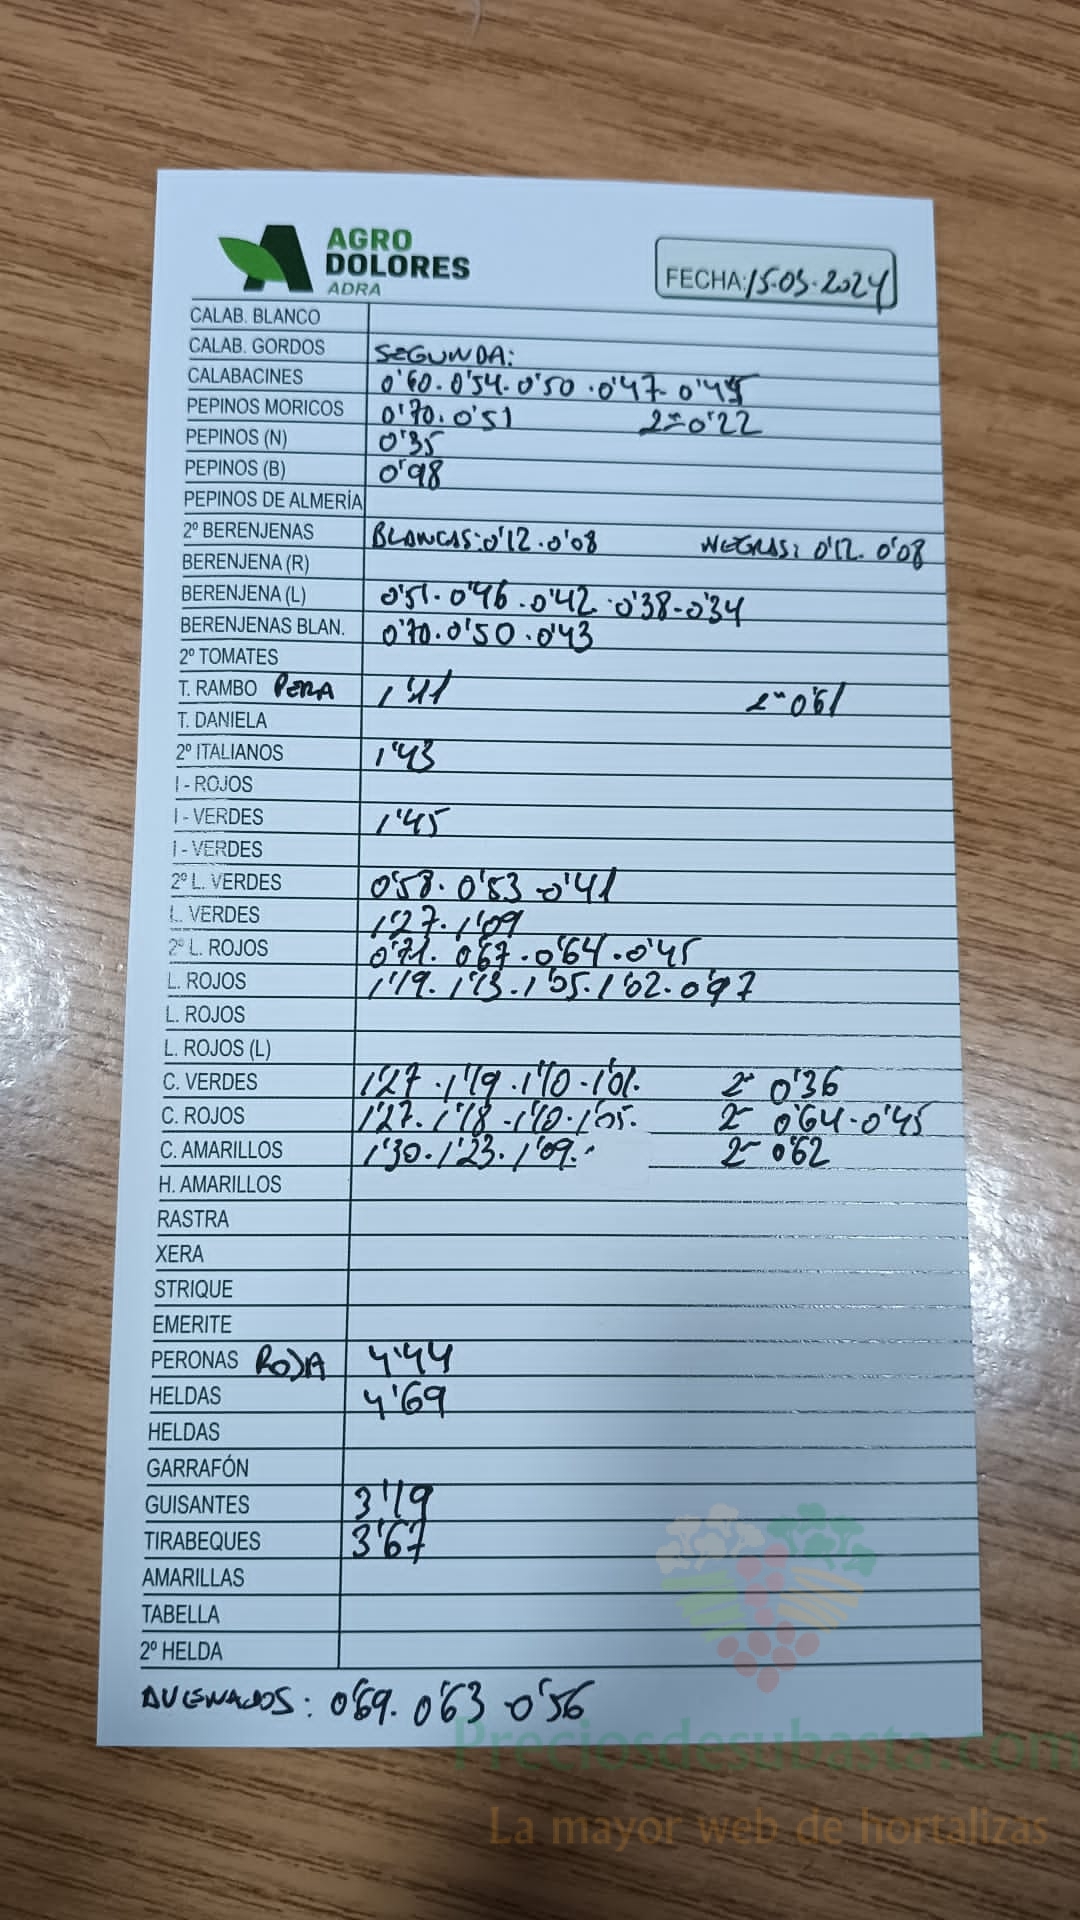 AGRO
DOLORES
ADRA
FECHA: 15-03-2024
CALAB. BLANCO
CALAB. GORDOS SEGUNDA:
CALABACINES 0'60. 0'54. 0'50 . 0'47. 0'45
PEPINOS MORICOS 0'70. 0'51 2ª 0'22
PEPINOS (N) 0'35
PEPINOS (B) 0'98
PEPINOS DE ALMERÍA
2º BERENJENAS BLANCAS: 0'12. 0'08 NEGRAS: 0'12. 0'08
BERENJENA (R)
BERENJENA (L) 0'51. 0'46 . 0'42 . 0'38 - 0'34
BERENJENAS BLAN. 0'70. 0'50 . 0'43
2º TOMATES
T. RAMBO PERA 1'11 2ª 0'61
T. DANIELA
2º ITALIANOS 1'43
I - ROJOS
I - VERDES 1'45
I - VERDES
2º L. VERDES 0'58. 0'53 - 0'41
L. VERDES 1'27. 1'09
2º L. ROJOS 0'71. 0'67 . 0'64 . 0'45
L. ROJOS 1'19. 1'13. 1'05. 1'02. 0'97
L. ROJOS
L. ROJOS (L)
C. VERDES 1'27 . 1'19 . 1'10 . 1'01. 2ª 0'36
C. ROJOS 1'27. 1'18 . 1'10 . 1'05. 2ª 0'64 . 0'45
C. AMARILLOS 1'30. 1'23. 1'09. 2ª 0'62
H. AMARILLOS
RASTRA
XERA
STRIQUE
EMERITE
PERONAS ROJA 4'44
HELDAS 4'69
HELDAS
GARRAFÓN
GUISANTES 3'19
TIRABEQUES 3'67
AMARILLAS
TABELLA
2º HELDA
AVENADOS: 0'69. 0'63 0'56
Preciosdesubasta.com
La mayor web de hortalizas